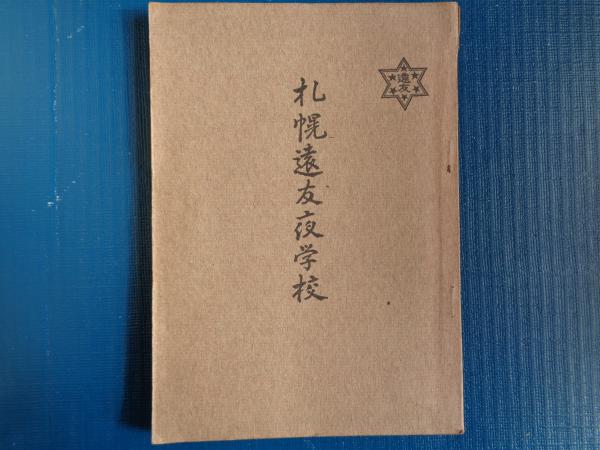 札幌遠友夜学校
遠友